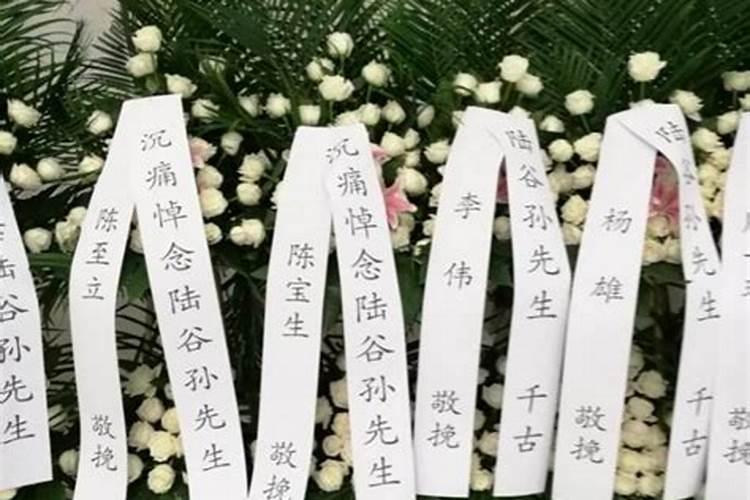 陆谷孙先生
陈至立
敬挽
沉痛悼念陆谷孙先生
陈宝生
敬挽
沉痛悼念陆谷孙先生
李伟
敬挽
陆谷孙先生 千古
杨雄
敬挽
陆谷孙先生 千古
敬挽